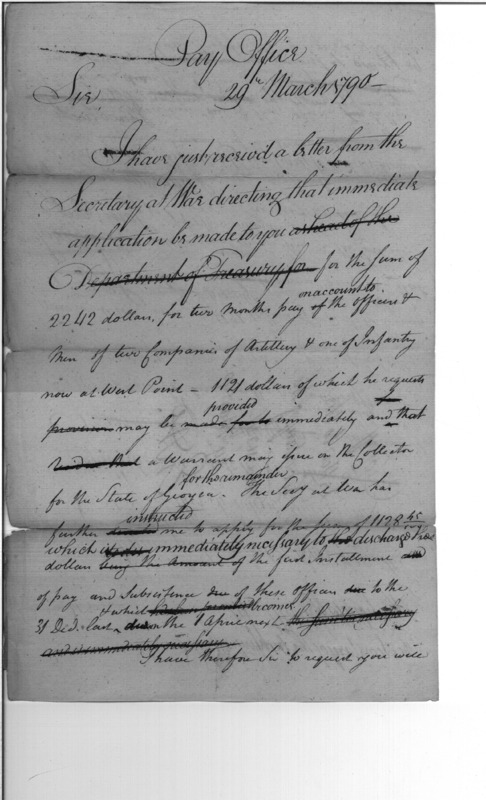 Pay Office
29th March 1790 -
Sir
I have just received a letter from the
Secretary at War directing that immediate
application be made to you as head of the
Department of Treasury for for the Sum of
on account to
2242 dollars, for two months pay of the Officers &
Men of two Companies of Artillery & one of Infantry
now at West Point - 1121 dollars of which he requests
provided
may be made immediately and that
a Warrant may issue on the Collector
for the remainder
for the State of Georgia. The Secy at War has
instructed
further me to apply for the sum of 1128
which immediately necessary to discharge
dollars being the Amount of the first Installment
of pay and Subsistence due of these Officers due to the
& which becomes
31 Decd. last due on the 1 April next
and immediately
I have therefore Sir to request you will